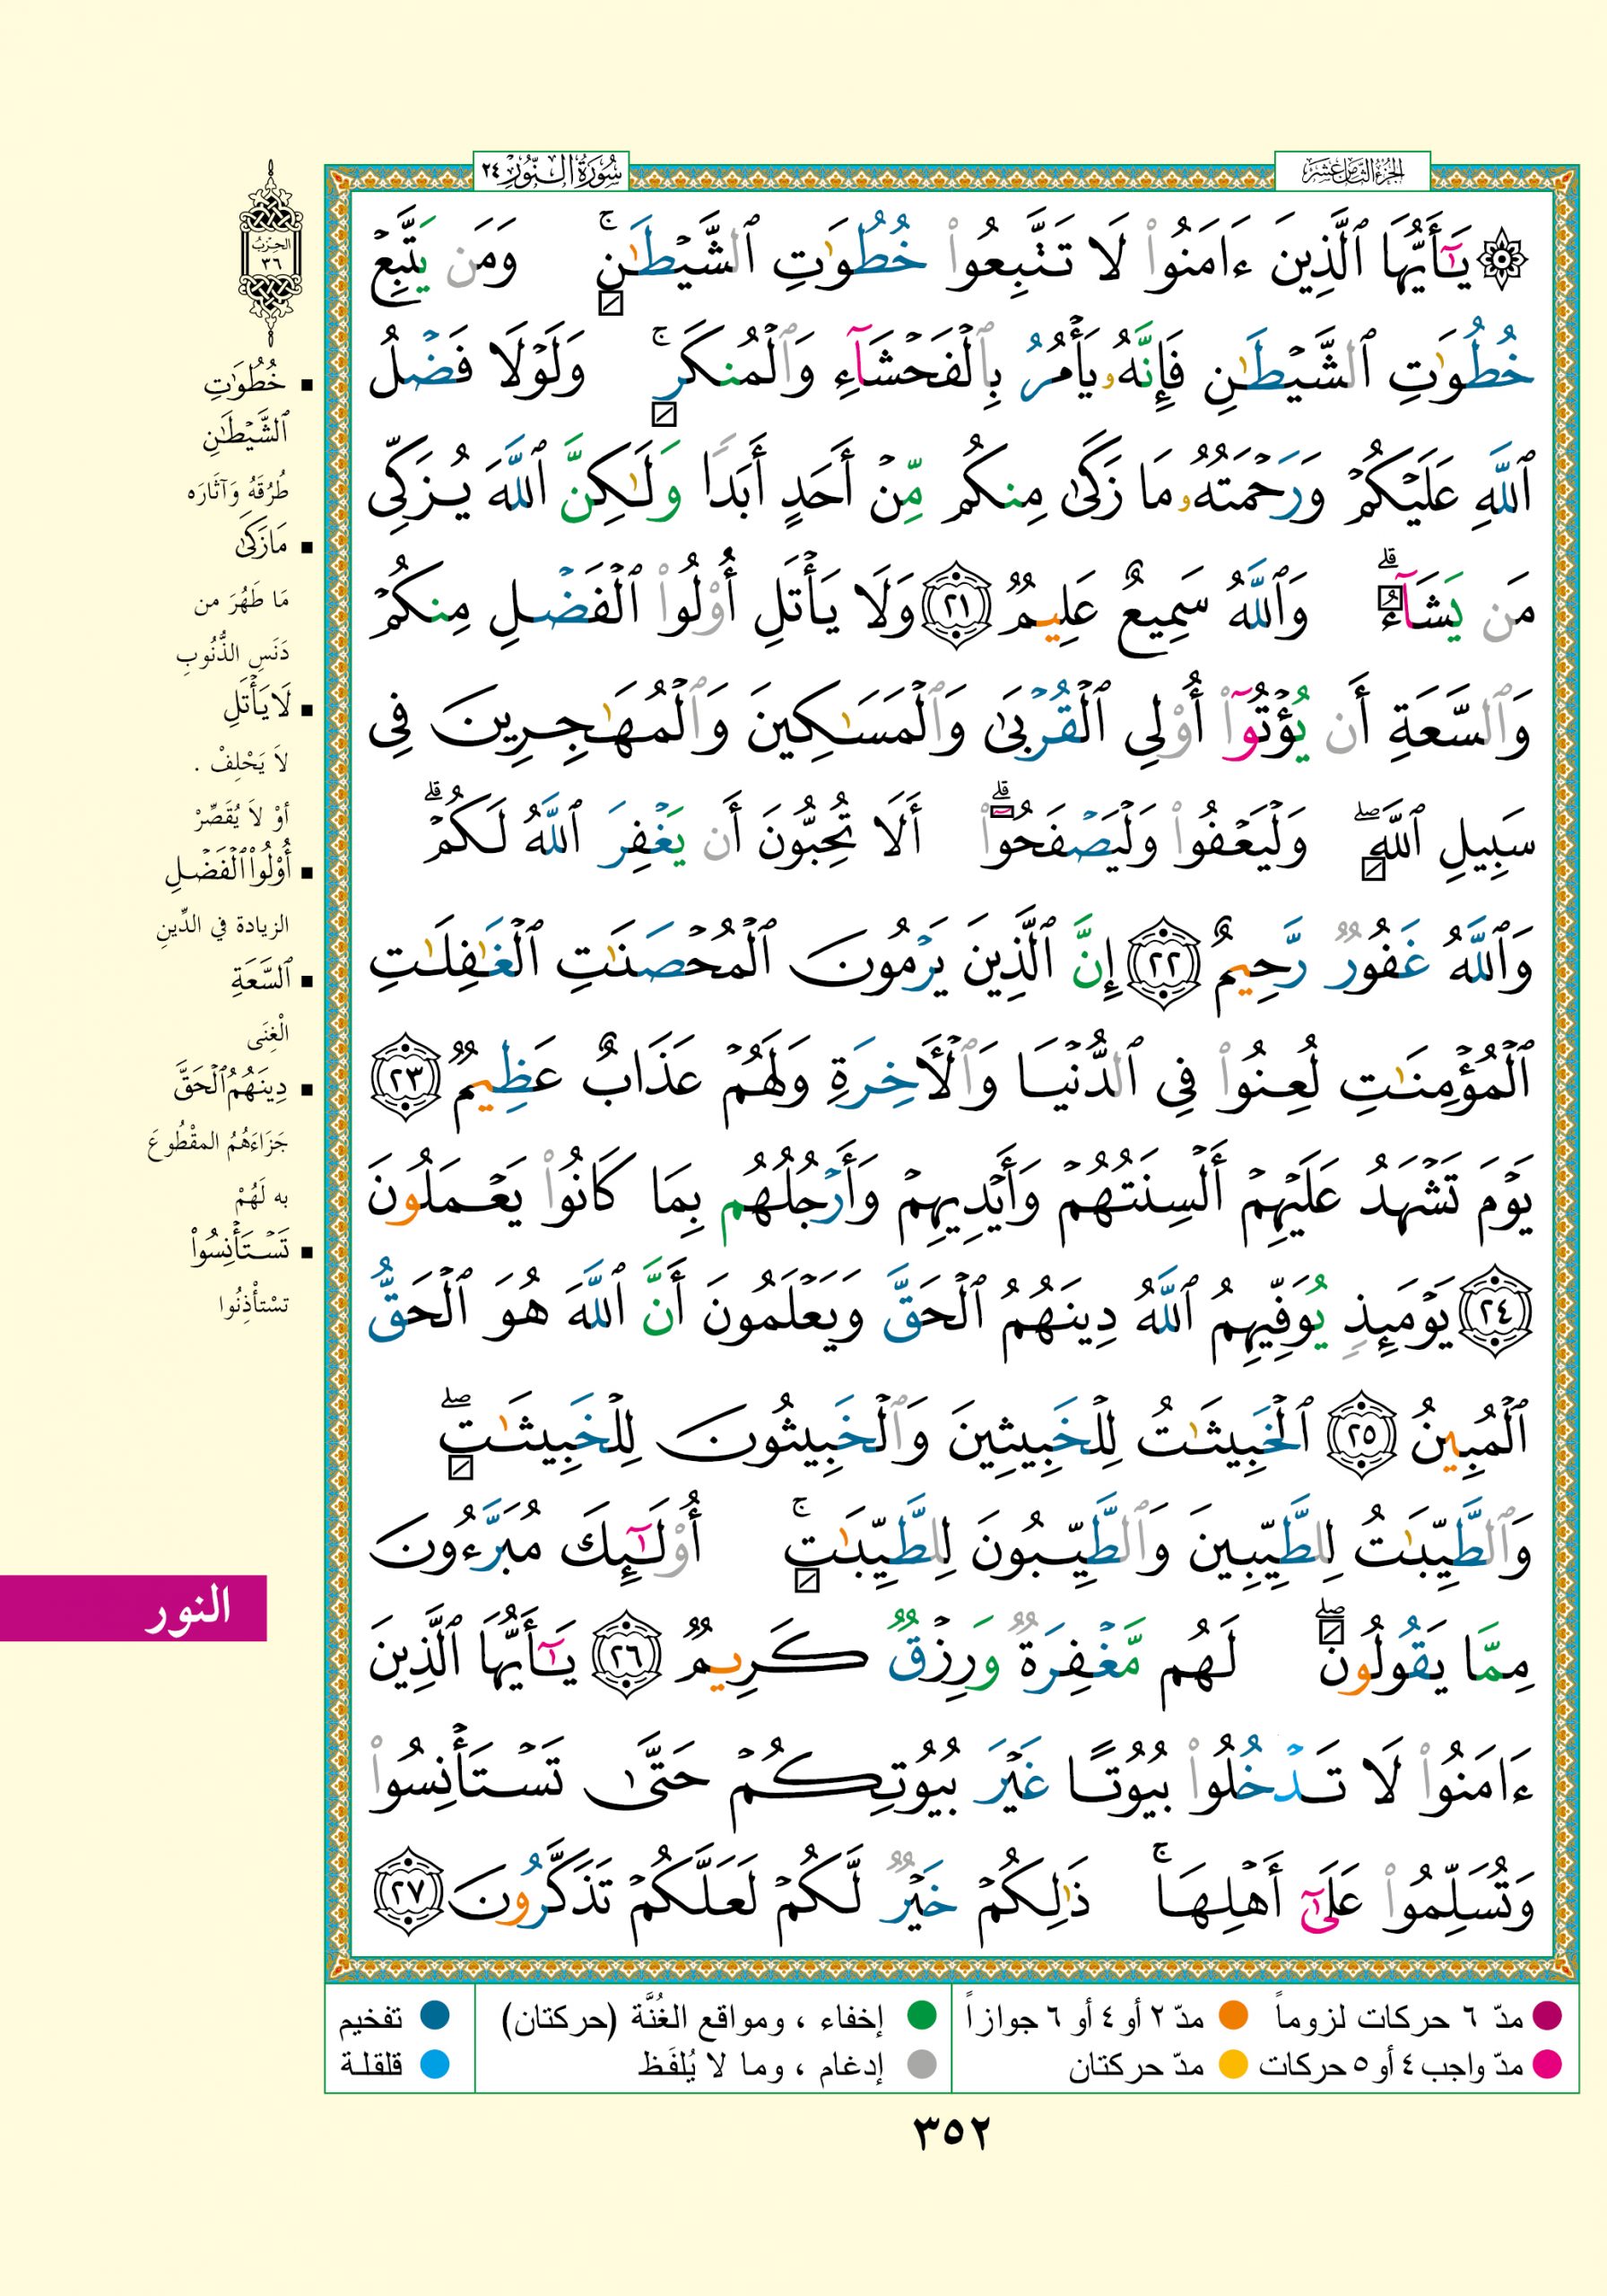 الجزء الثامن عشر
سُورَةُ النُّورِ ٢٤
۞ يَٰٓأَيُّهَا ٱلَّذِينَ ءَامَنُوا۟ لَا تَتَّبِعُوا۟ خُطُوَٰتِ ٱلشَّيْطَٰنِ ۚ وَمَن يَتَّبِعْ
خُطُوَٰتِ ٱلشَّيْطَٰنِ فَإِنَّهُۥ يَأْمُرُ بِٱلْفَحْشَآءِ وَٱلْمُنكَرِ ۚ وَلَوْلَا فَضْلُ
ٱللَّهِ عَلَيْكُمْ وَرَحْمَتُهُۥ مَا زَكَىٰ مِنكُم مِّنْ أَحَدٍ أَبَدًا وَلَٰكِنَّ ٱللَّهَ يُزَكِّى
مَن يَشَآءُ ۗ وَٱللَّهُ سَمِيعٌ عَلِيمٌ ﴿٢١﴾ وَلَا يَأْتَلِ أُو۟لُوا۟ ٱلْفَضْلِ مِنكُمْ
وَٱلسَّعَةِ أَن يُؤْتُوٓا۟ أُو۟لِى ٱلْقُرْبَىٰ وَٱلْمَسَٰكِينَ وَٱلْمُهَٰجِرِينَ فِى
سَبِيلِ ٱللَّهِ ۖ وَلْيَعْفُوا۟ وَلْيَصْفَحُوٓا۟ ۗ أَلَا تُحِبُّونَ أَن يَغْفِرَ ٱللَّهُ لَكُمْ ۗ
وَٱللَّهُ غَفُورٌ رَّحِيمٌ ﴿٢٢﴾ إِنَّ ٱلَّذِينَ يَرْمُونَ ٱلْمُحْصَنَٰتِ ٱلْغَٰفِلَٰتِ
ٱلْمُؤْمِنَٰتِ لُعِنُوا۟ فِى ٱلدُّنْيَا وَٱلْـَٔاخِرَةِ وَلَهُمْ عَذَابٌ عَظِيمٌ ﴿٢٣﴾
يَوْمَ تَشْهَدُ عَلَيْهِمْ أَلْسِنَتُهُمْ وَأَيْدِيهِمْ وَأَرْجُلُهُم بِمَا كَانُوا۟ يَعْمَلُونَ
﴿٢٤﴾ يَوْمَئِذٍ يُوَفِّيهِمُ ٱللَّهُ دِينَهُمُ ٱلْحَقَّ وَيَعْلَمُونَ أَنَّ ٱللَّهَ هُوَ ٱلْحَقُّ
ٱلْمُبِينُ ﴿٢٥﴾ ٱلْخَبِيثَٰتُ لِلْخَبِيثِينَ وَٱلْخَبِيثُونَ لِلْخَبِيثَٰتِ ۖ
وَٱلطَّيِّبَٰتُ لِلطَّيِّبِينَ وَٱلطَّيِّبُونَ لِلطَّيِّبَٰتِ ۚ أُو۟لَٰٓئِكَ مُبَرَّءُونَ
مِمَّا يَقُولُونَ ۖ لَهُم مَّغْفِرَةٌ وَرِزْقٌ كَرِيمٌ ﴿٢٦﴾ يَٰٓأَيُّهَا ٱلَّذِينَ
ءَامَنُوا۟ لَا تَدْخُلُوا۟ بُيُوتًا غَيْرَ بُيُوتِكُمْ حَتَّىٰ تَسْتَأْنِسُوا۟
وَتُسَلِّمُوا۟ عَلَىٰٓ أَهْلِهَا ۚ ذَٰلِكُمْ خَيْرٌ لَّكُمْ لَعَلَّكُمْ تَذَكَّرُونَ ﴿٢٧﴾
الحزب
٣٦
▪ خُطُوَٰتِ
ٱلشَّيْطَٰنِ
طُرُقَهُ وَآثَارَه
▪ مَا زَكَىٰ
مَا طَهُرَ من
دَنَسِ الذُّنُوبِ
▪ لَا يَأْتَلِ
لاَ يَحْلِفْ .
أوْ لاَ يُقَصِّرْ
▪ أُو۟لُوا۟ ٱلْفَضْلِ
الزيادة في الدِّينِ
▪ ٱلسَّعَةِ
الْغِنَى
▪ دِينَهُمُ ٱلْحَقَّ
جَزَاءَهُمُ المقْطُوعَ
به لَهُمْ
▪ تَسْتَأْنِسُوا۟
تسْتأْذِنُوا
النور
مدّ ٦ حركات لزوماً
مدّ ٢ أو ٤ أو ٦ جوازاً
إخفاء ، ومواقع الغُنَّة (حركتان)
تفخيم
مدّ واجب ٤ أو ٥ حركات
مدّ حركتان
إدغام ، وما لا يُلفَظ
قلقلة
٣٥٢